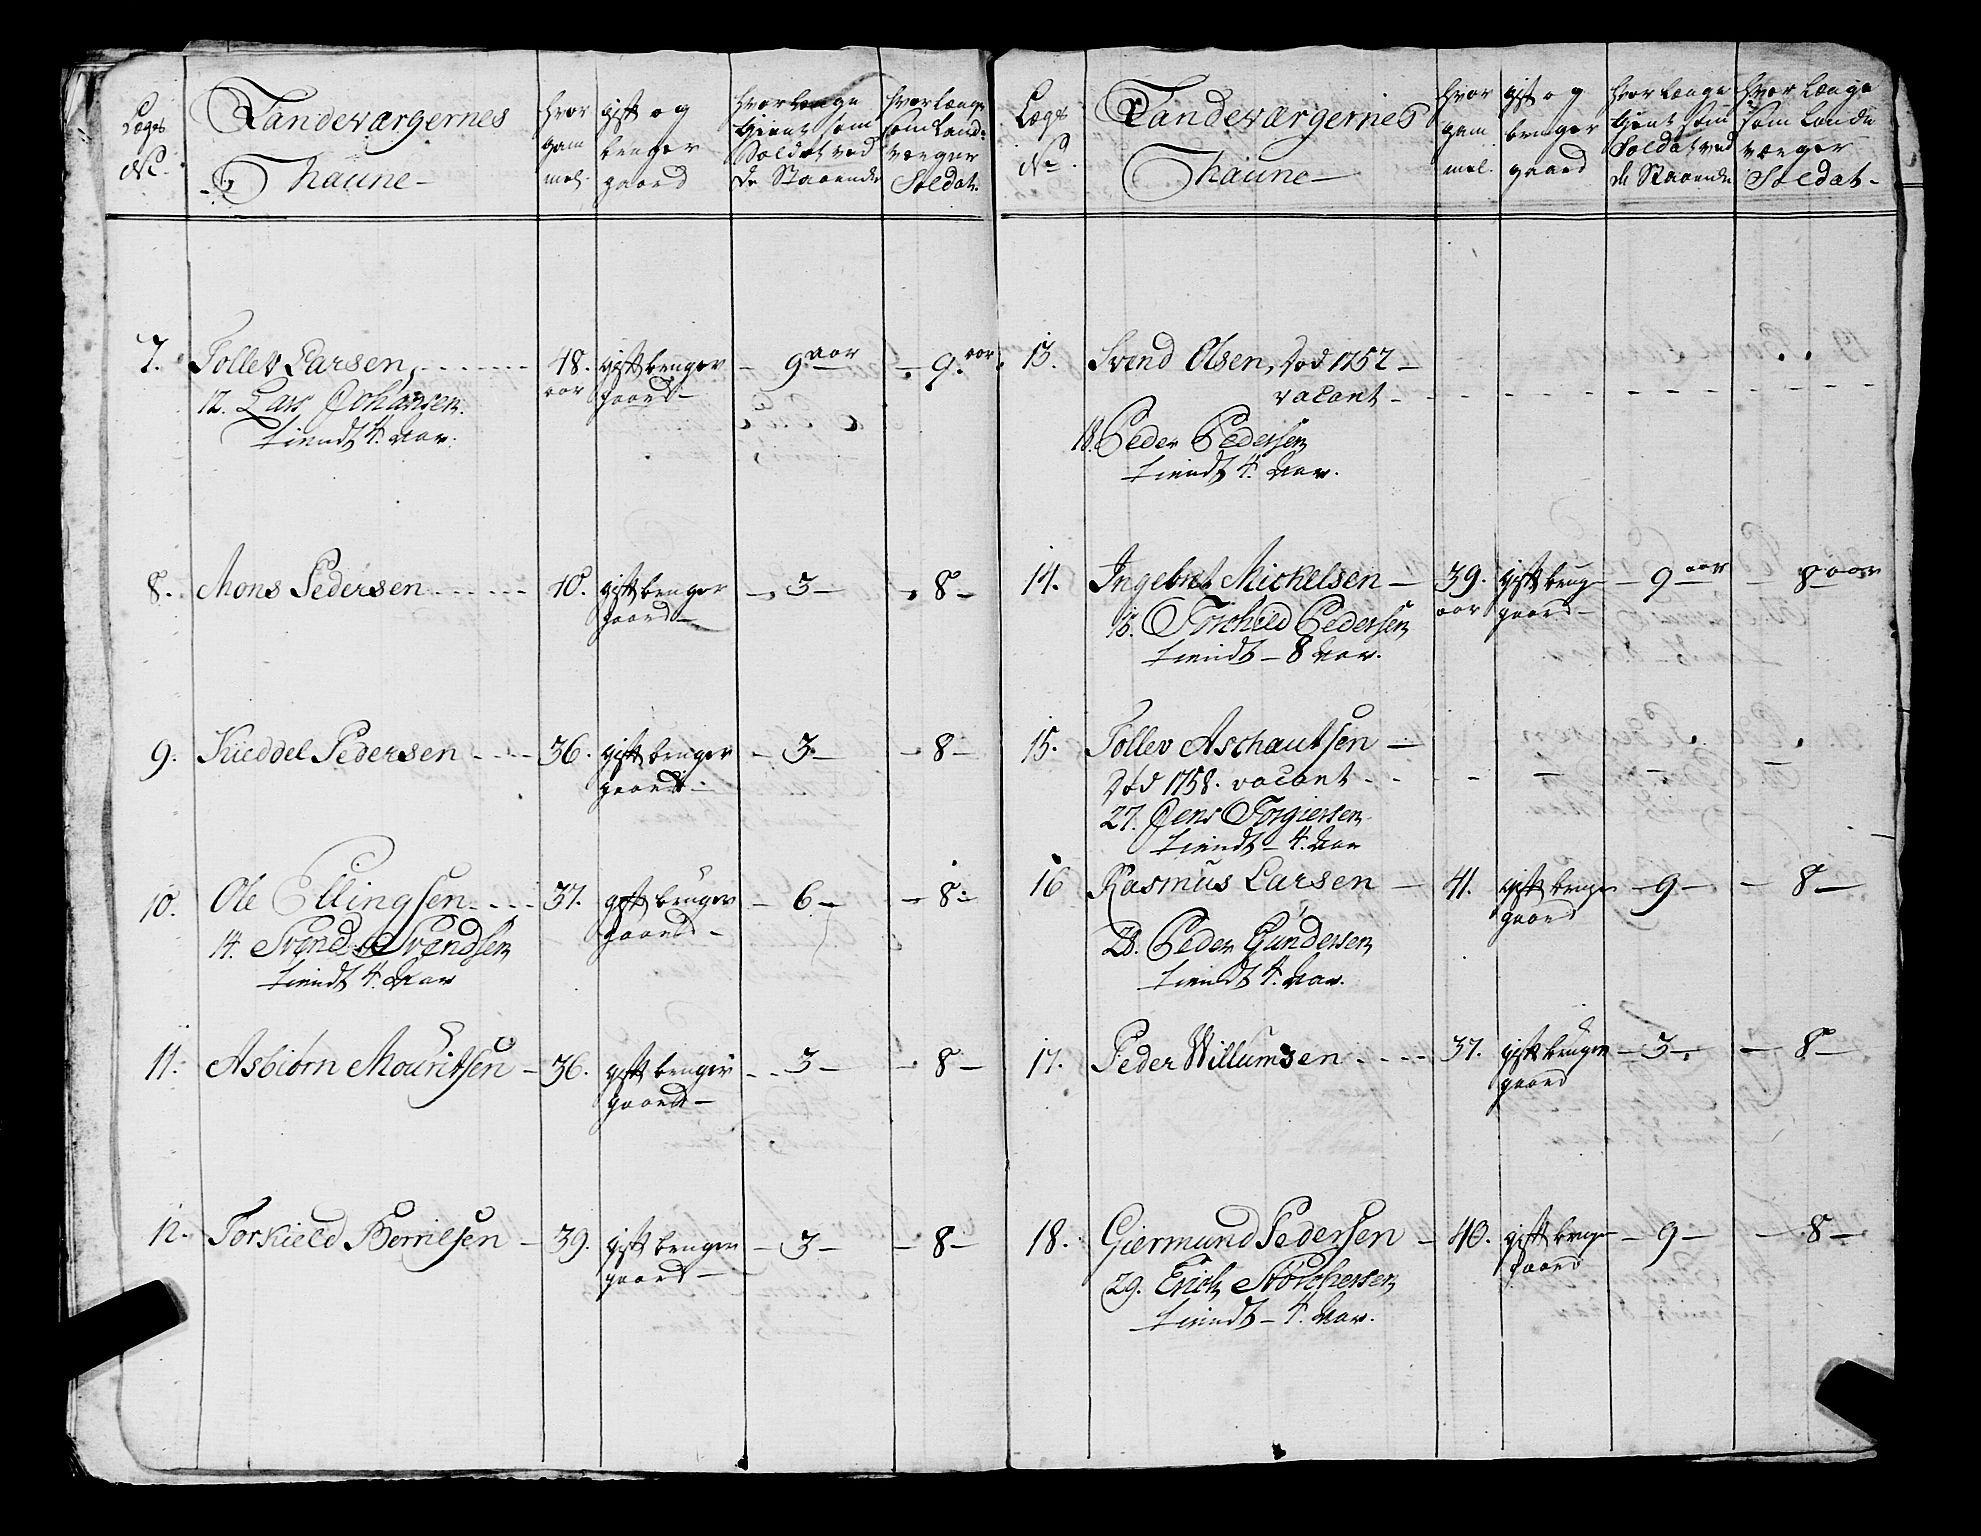 Lægs No.
Landeværgernes Nafne
hvor gammel.
gift og bruger gaard
hvor længe tient som Soldat ved de Staaende
hvor længe som Landeværger Soldat.
7. Tollev Larsen, 48. aar gift bruger gaard 9 aar 9. aar
12. Lars Johansen.
tiendt 4. Aar.
8. Mons Pedersen 40. gift bruger gaard 3 8
9. Kieddel Pedersen 36. gift bruger gaard 3 8
10. Ole Ellingsen 37. gift bruger gaard 6 8
14. Svend Svendsen
tiendt 4. Aar
11. Asbiørn Mouritsen 36. gift bruger gaard 3 8
12. Torkield Berrilsen 39. gift bruger gaard 3 8
Lægs No.
Landeværgernes Nafne
hvor gammel.
gift og bruger gaard
hvor længe tient som Soldat ved de Staaende
hvor længe som Landeværger Soldat
13. Svend Olsen, død 1757
vacant
18. Peder Pedersen
tiendt 4. Aar.
14. Ingebret Mickelsen 39. aar gift bruger gaard 9 aar 8 aar
Torchild Pedersen
tiendt 8 Aar.
15. Tollev Aschautsen
død 1758. vacant
27. Jens Torgiersen
tiendt 4. Aar
16 Rasmus Larsen 41. gift bruger gaard 9 8
28. Peder Gundersen
tiendt 4. Aar.
17. Peder Willumsen 37. gift bruger gaard 3 8
18. Giermund Pedersen 40. gift bruger gaard 9 8
29. Erich
tiendt 4. Aar.